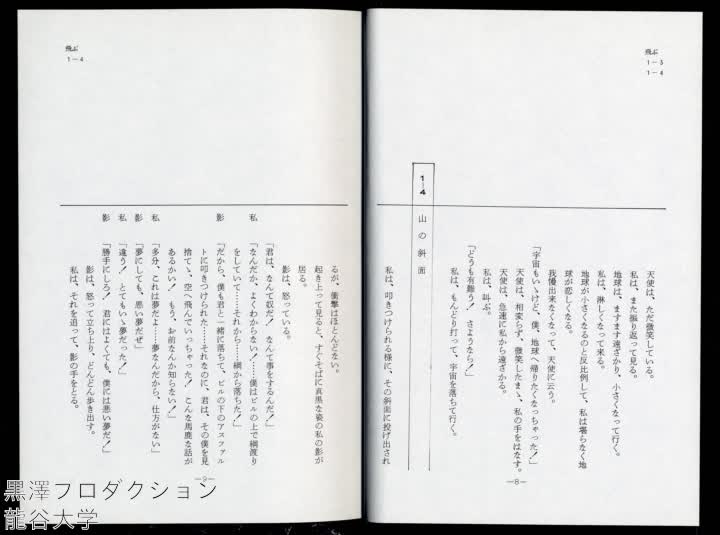 飛ぶ
1―3
1―4
天使は、ただ微笑している。
私は、また振り返って見る。
地球は、ますます遠ざかり、小さくなって行く。
私は、淋しくなって来る。
地球が小さくなるのと反比例して、私は堪らなく地
球が恋しくなる。
我慢出来なくなって、天使に云う。
「宇宙もいゝけど、僕、地球へ帰りたくなっちゃった！」
天使は、相変らず、微笑したまゝ、私の手をはなす。
天使は、急速に私から遠ざかる。
私は、叫ぶ。
「どうも有難う！　さようなら！」
私は、もんどり打って、宇宙を落ちて行く。
1―4　山の斜面
私は、叩きつけられる様に、その斜面に投げ出され
―8―
飛ぶ
1―4
るが、衝撃はほとんどない。
起き上って見ると、すぐそばに真黒な姿の私の影が
居る。
影は、怒っている。
「君は、なんて奴だ！　なんて事をするんだ！」
私　「なんだか、よくわからない！……僕はビルの上で綱渡り
をしていて……それから……綱から落ちた！」
影　「だから、僕も君と一緒に落ちて、ビルの下のアスファル
トに叩きつけられた……それなのに、君は、その僕を見
捨てゝ、空へ飛んでいっちゃった！　こんな馬鹿な話が
あるかい！　もう、お前なんか知らない！」
私　「多分、これは夢だよ……夢なんだから、仕方がない」
影　「夢にしても、悪い夢だぜ」
私　「違う！　とてもいゝ夢だった！」
影　「勝手にしろ！　君にはよくても、僕には悪い夢だ！」
影は、怒って立ち上り、どんどん歩き出す。
私は、それを追って、影の手をとる。
―9―
黒澤プロダクション
龍谷大学